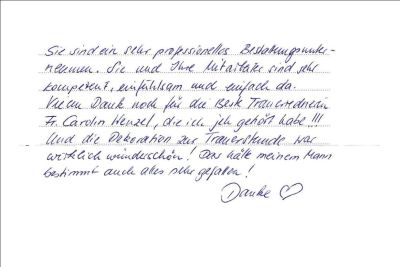 Sie sind ein sehr professionelles Bestattungsunter-
nehmen. Sie und Ihre Mitarbeiter sind sehr
kompetent, einfühlsam und einfach da.
Vielen Dank noch für die Beste Trauerrednerin
Fr. Carolin Henzel, die ich jeh gehört habe!!!
Und die Dekoration zur Trauerstunde war
wirklich wunderschön! Das hätte meinem Mann
bestimmt auch alles sehr gefallen!
Danke ♡